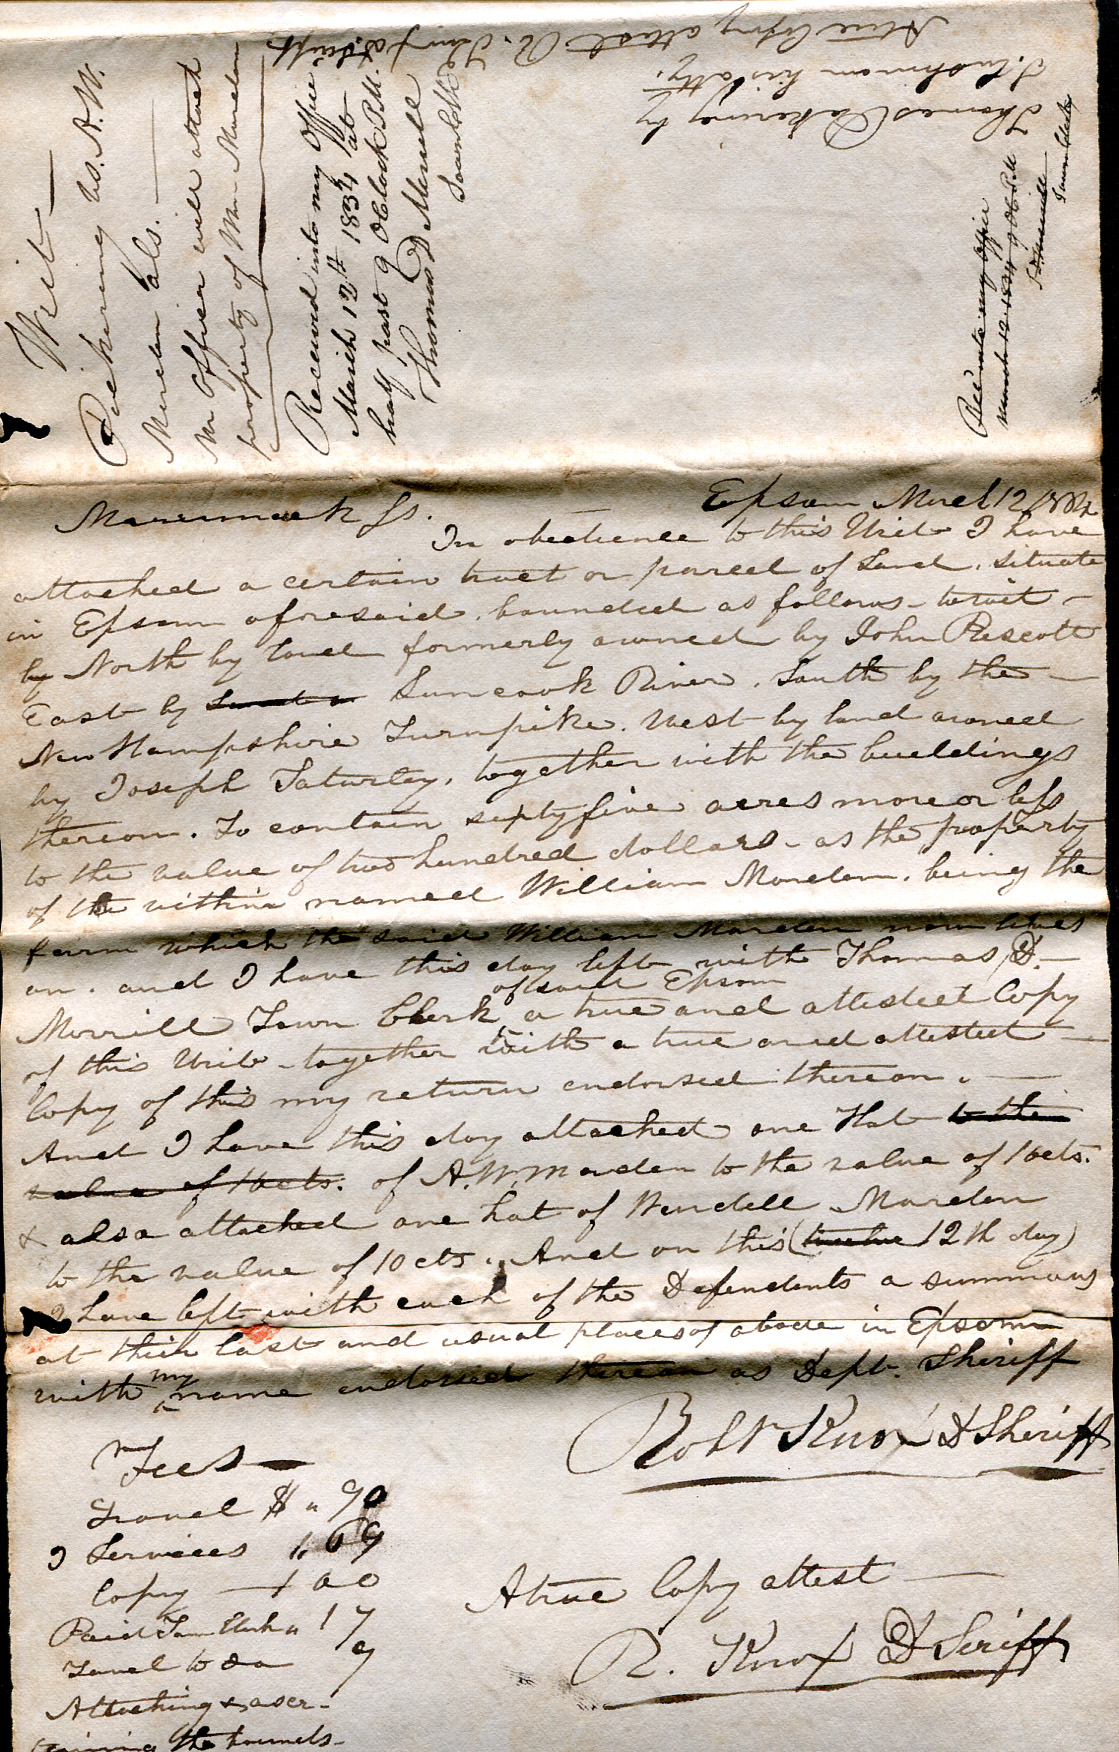 Writ
Pickering vs. A. W.
Marden & als.
Mr Officer will attach
property of Wm Marden
Received into my Office
March 12th 1834 at
half past 9 OClock P.M.
Thomas D Merrill
Town Clerk
Thomas Pickering by
S. Cushman his atty.
A true Copy attest R. Knox D Sheriff
Rec'd into my office
March 12 1834 9 O C P.M
T D Merrill
Town Clerk
Merrimack Ss. Epsom March 12 1834
In obedience to this Writ I have
attached a certain tract or parcel of Land, situate
in Epsom aforesaid, bounded as follows - to wit -
by North by land formerly owned by John Prescott
East by Suncook River, South by the
New Hampshire Turnpike. West by land owned
by Joseph Taturley, together with the buildings
thereon. To contain septy five acres more or less
to the value of two hundred dollars - as the property
of the within named William Marden, being the
farm which the said William Marden now lives
on. and I have this day left with Thomas D.
Morrill Town Clerk of said Epsom a true and attested Copy
of this Writ - together with a true and attested
Copy of this my return endorsed thereon.
And I have this day attached one Hat to the
value of 10cts. of A. W. Marden to the value of 10cts.
& also attached one hat of Wendell Marden
to the value of 10 cts. And on this (twelve 12th day)
I have left with each of the Defendents a summons
at their last and usual places of abode in Epsom
with my name endorsed thereon as Dept. Sheriff
Robt Knox D Sheriff
Fees
Travel $ " 90
Services " 69
Copy 1 00
Paid Town Clerk " 17
Travel to do 9
Attaching & aser-
taining the bounds
A true Copy attest
R. Knox D Seriff